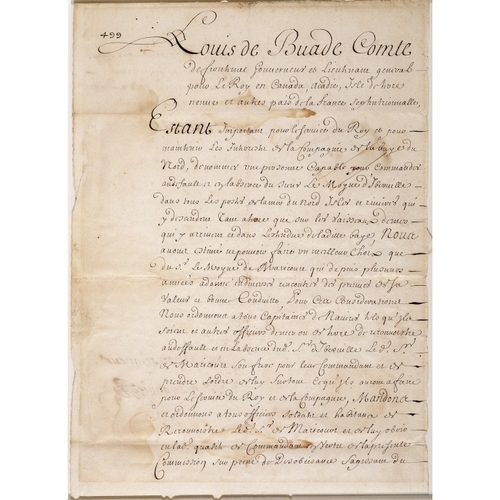 499
Louis de Buade Comte
de frontenac Gouverneur et Lieutenant general
pour Le Roy en Canada, acadie, Isle de terre
neuve et autres pais de la france septentrionalle,
Estant Important pour le service du Roy et pour
maintenir Les Interests de la Compagnie de la baye du
Nord, de nommer une personne Capable pour commander
audeffault et en labsence du sieur Le Moyne d'Iberville
dans tous Les postes et lamer du Nord Isles et rivieres qui
y descendent Tant aterre que sur les Vaisseaux
qui y arrivent et dans Lestendue de ladite baye, Nous
avons estimé ne pouvoir faire un meilleur Choix que
du Sr. Le Moyne de Maricourt qui depuis plusieurs
années a donné des preuves de sa
Valeur et bonne Conduitte, Pour Ces Considerations
Nous ordonnons a tous Capitaines de Navires
et autres officiers de mer ou de terre de reconnoistre
audeffault et en Labsence du Sr. d'Iberville Le d. Sr.
de Maricourt son frere pour leur Commandant et de
prendre Lordre de luy sur tout ce quils auront a faire
pour Le service du Roy et de la Compagnie, Mandons
et ordonnons a tous officiers soldats et habitans de
Reconnoistre Led. Sr. de Maricourt et de luy obeir
en lad. qualité de Commandant en Vertu de la presente
Commission sur peine de Desobeisance